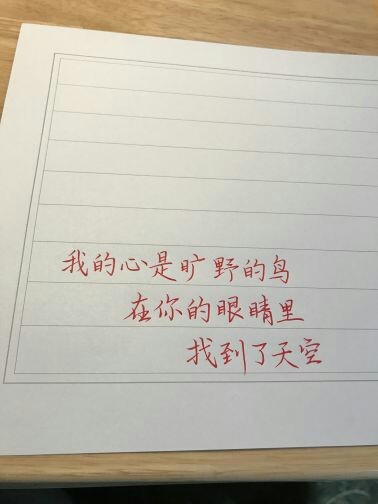 我的心是旷野的鸟
在你的眼睛里
找到了天空